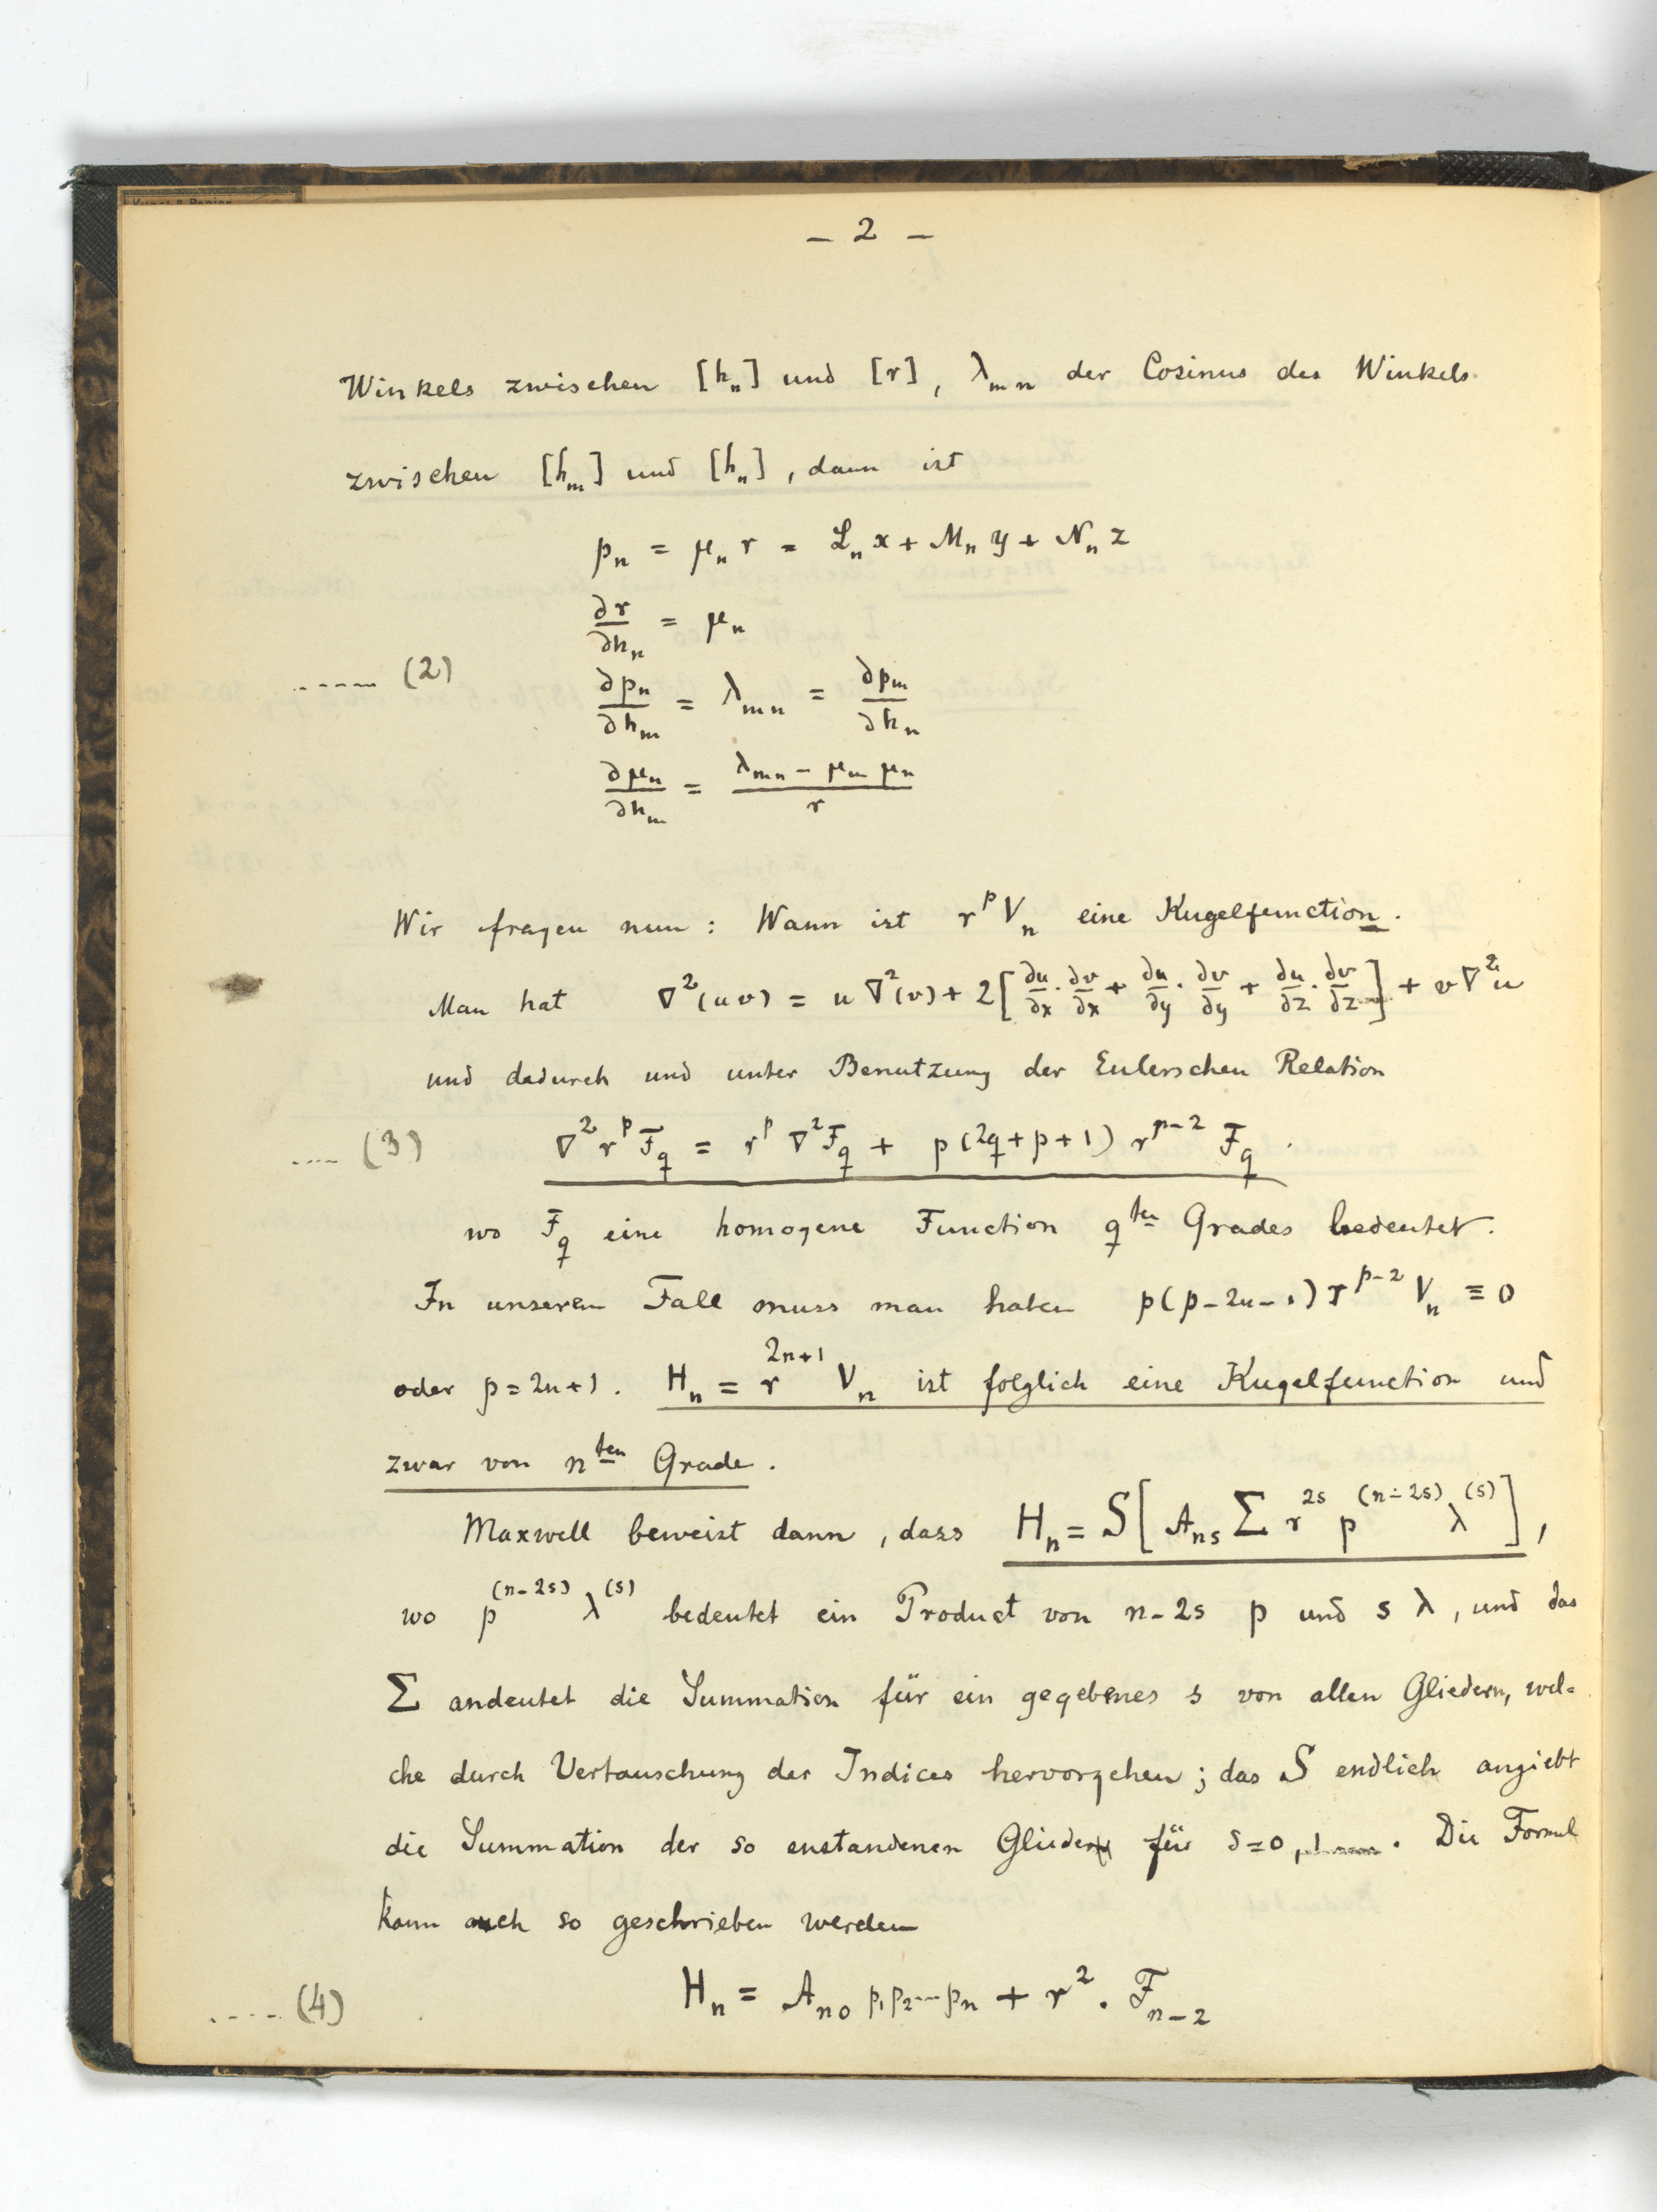 – 2 –
Winkels zwischen [hₙ] und [r], λₘₙ der Cosinus des Winkels
zwischen [hₘ] und [hₙ], dann ist
pₙ = μₙ r = Lₙ x + Mₙ y + Nₙ z
∂r/∂hₙ = μₙ
..... (2) ∂pₙ/∂hₘ = λₘₙ = ∂pₘ/∂hₙ
∂μₙ/∂hₘ = (λₘₙ – μₘ μₙ)/r
Wir fragen nun: Wann ist r^p Vₙ eine Kugelfunction.
Man hat ∇²(uv) = u ∇²(v) + 2[∂u/∂x · ∂v/∂x + ∂u/∂y · ∂v/∂y + ∂u/∂z · ∂v/∂z] + v∇²u
und dadurch und unter Benutzung der Eulerschen Relation
.... (3) ∇² r^p F_q = r^p ∇² F_q + p(2q+p+1) r^{p-2} F_q .
wo F_q eine homogene Function q^{ten} Grades bedeutet.
In unserem Fall muss man haben p(p–2n–1) r^{p–2} Vₙ ≡ 0
oder p = 2n+1. Hₙ = r^{2n+1} Vₙ ist folglich eine Kugelfunction und
zwar von n^{ten} Grade.
Maxwell beweist dann, dass Hₙ = S[A_{ns} Σ r^{2s} p^{(n–2s)} λ^{(s)}],
wo p^{(n–2s)} λ^{(s)} bedeutet ein Product von n–2s p und s λ, und das
Σ andeutet die Summation für ein gegebenes s von allen Gliedern, wel=
che durch Vertauschung der Indices hervorgehen; das S endlich angiebt
die Summation der so enstandenen Glieder für s=0, 1 .... . Die Formel
kann auch so geschrieben werden
.... (4) Hₙ = A_{n0} p₁p₂...pₙ + r² . F_{n–2}